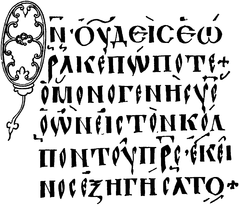 ΘΝ·ΟΥΔΕΙϹΕΩ
ΡΑΚΕΠΩΠΟΤΕ+
ΟΜΟΝΟΓΕΝΗϹΥϹ
ΟΩΝΕΙϹΤΟΝΚΟΛ
ΠΟΝΤΟΥΠΡϹ·ΕΚΕΙ
ΝΟϹΕΞΗΓΗϹΑΤΟ+